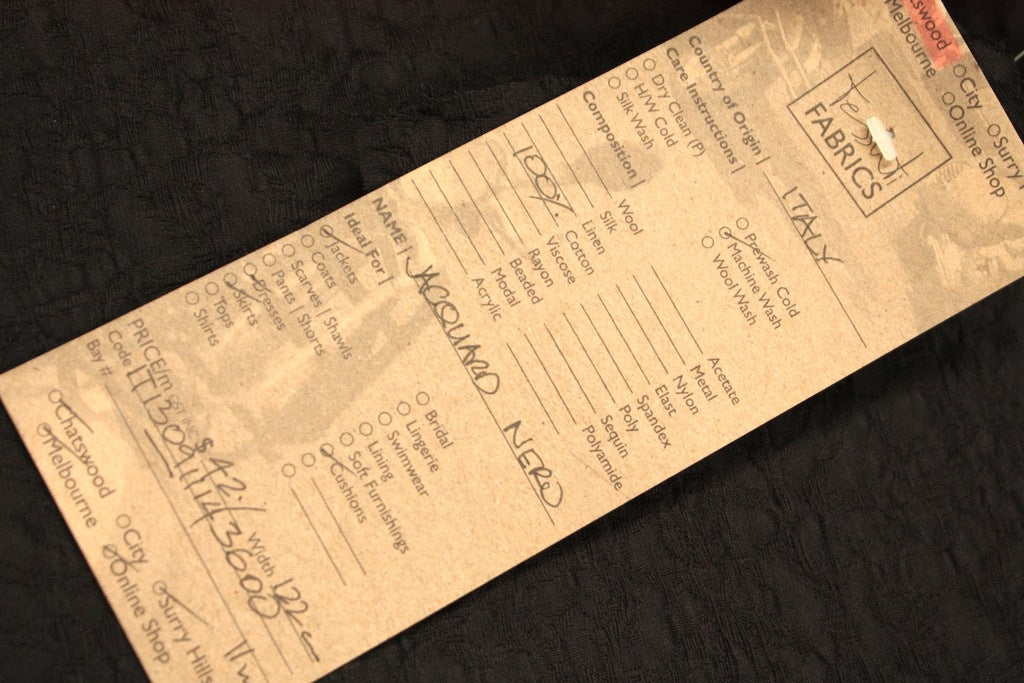 swood
Melbourne
City
Online Shop
Surry
Tessuti
FABRICS
Country of Origin | ITALY
Care Instructions |
Dry Clean (P)
H/W Cold
Silk Wash
Prewash Cold
Machine Wash
Wool Wash
Composition |
Wool
Silk
Linen
100% Cotton
Viscose
Rayon
Beaded
Modal
Acrylic
Acetate
Metal
Nylon
Elast
Spandex
Poly
Sequin
Polyamide
NAME | JACQUARD NERO
Ideal For |
Jackets
Coats
Scarves | Shawls
Pants | Shorts
Dresses
Skirts
Tops
Shirts
Bridal
Lingerie
Swimwear
Lining
Soft Furnishings
Cushions
PRICE/m $42. Width 122c
Code
Bay #
Chatswood
Melbourne
City
Online Shop
Surry Hills